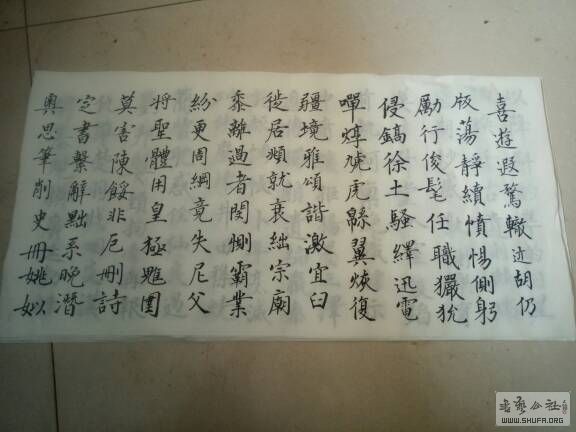 喜遊遐騖轍迹胡仍
版蕩靜續憤惕側躬
勵行俊髦任職玁狁
侵鎬徐土騷繹迅電
嘽焞虓虎緜翼燬復
疆境雅頌諧激宜臼
徙居頻就衰絀宗廟
黍離過者閔惻霸業
紛更周綱竟失尼父
將聖體用皇極魋圍
莫害陳餒非厄刪詩
定書繫辭黜系晚潛
奧思筆削史冊姚姒
书艺公社
WWW.SHUFA.ORG